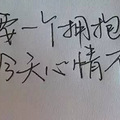 要一个拥抱
今天心情不